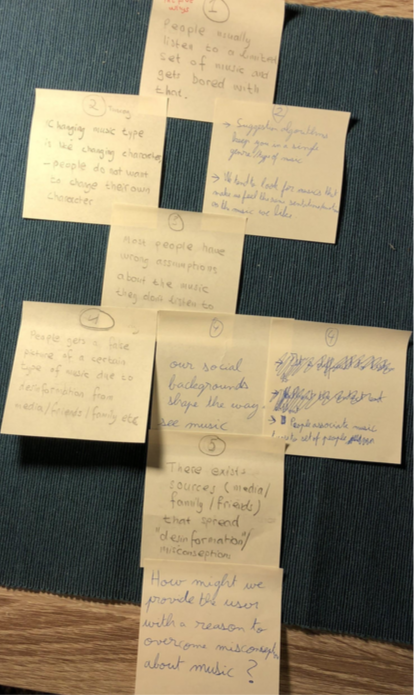 1
People usually
listen to a limited
set of music and
gets bored with
that.
2
Changing music type
is like changing character
– people do not want
to change their own
character
2
→ Suggestion algorithms
keep you in a single
genre/type of music
→ We tend to look for music that
make us feel the same
on the music we like
3
Most people have
wrong assumptions
about the music
they don't listen to
4
People gets a false
picture of a certain
type of music due to
desinformation from
media/friends/family etc
4
our social
backgrounds
shape the way
see music
4
→ People associate music
to set of people
5
There exist
sources (media/
family/friends)
that spread
"desinformation"/
misconception
How might we
provide the user
with a reason to
overcome misconcepti
about music?